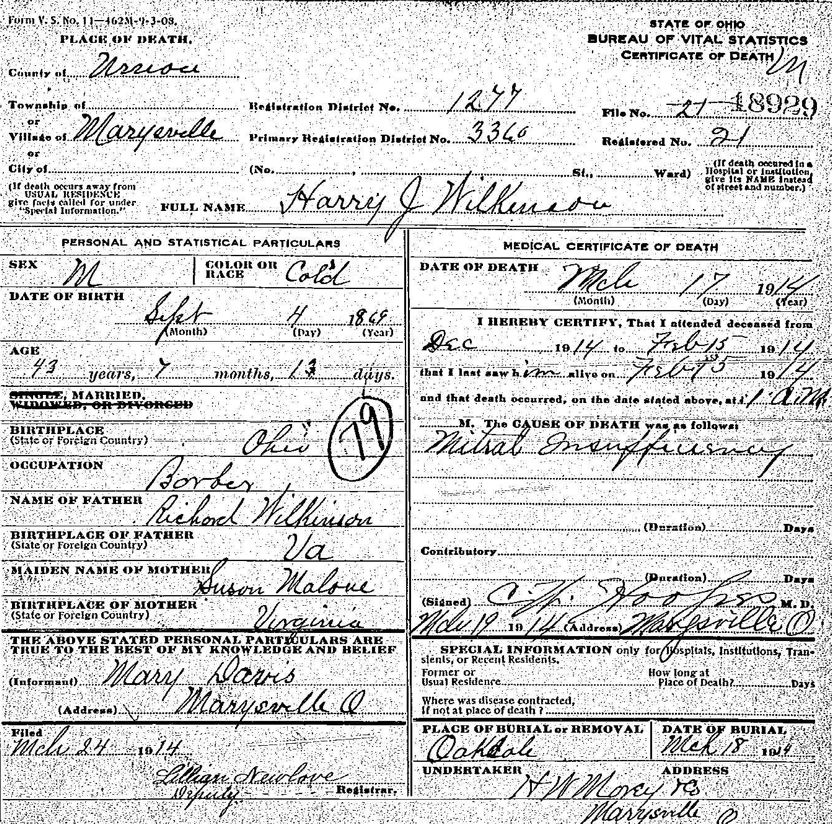 Form V. S. No. 11—462M-9-3-08.
PLACE OF DEATH.
STATE OF OHIO
BUREAU OF VITAL STATISTICS
CERTIFICATE OF DEATH
County of Union
Township of
or
Village of Marysville
or
City of
Registration District No. 1277
Primary Registration District No. 3360
(No. , St., Ward)
File No. 21 18929
Registered No. 21
(If death occured in a
Hospital or Institution,
give its NAME instead
of street and number.)
(If death occurs away from
USUAL RESIDENCE
give facts called for under
"Special Information."
FULL NAME Harry J Wilkinson
PERSONAL AND STATISTICAL PARTICULARS
SEX M
COLOR OR RACE Cold
DATE OF BIRTH
Sept 4 1869
(Month) (Day) (Year)
AGE
43 years, 7 months, 13 days.
SINGLE, MARRIED,
WIDOWED, OR DIVORCED
BIRTHPLACE
(State or Foreign Country) Ohio
79
OCCUPATION
Barber
NAME OF FATHER
Richard Wilkinson
BIRTHPLACE OF FATHER
(State or Foreign Country) Va
MAIDEN NAME OF MOTHER
Susan Malone
BIRTHPLACE OF MOTHER
(State or Foreign Country) Virginia
THE ABOVE STATED PERSONAL PARTICULARS ARE
TRUE TO THE BEST OF MY KNOWLEDGE AND BELIEF
(Informant) Mary Davis
(Address) Marysville O
Filed
Mch 24 1914
Lillian Newlove
Deputy Registrar.
MEDICAL CERTIFICATE OF DEATH
DATE OF DEATH Mch 17 1914
(Month) (Day) (Year)
I HEREBY CERTIFY, That I attended deceased from
Dec 1914 to Feb 15 1914
that I last saw him alive on Feb 15 1914
and that death occurred, on the date stated above, at 1 a.m.
M. The CAUSE OF DEATH was as follows:
Mitral Insufficiency
(Duration) Days
Contributory
(Duration) Days
(Signed) M. D.
Mch 19 1914 (Address) Marysville O
SPECIAL INFORMATION only for Hospitals, Institutions, Tran-
sients, or Recent Residents.
Former or
Usual Residence
How long at
Place of Death? Days
Where was disease contracted,
If not at place of death ?
PLACE OF BURIAL or REMOVAL
Oakdale
DATE OF BURIAL
Mch 18 1914
UNDERTAKER
ADDRESS
H W Morey & Co
Marysville O